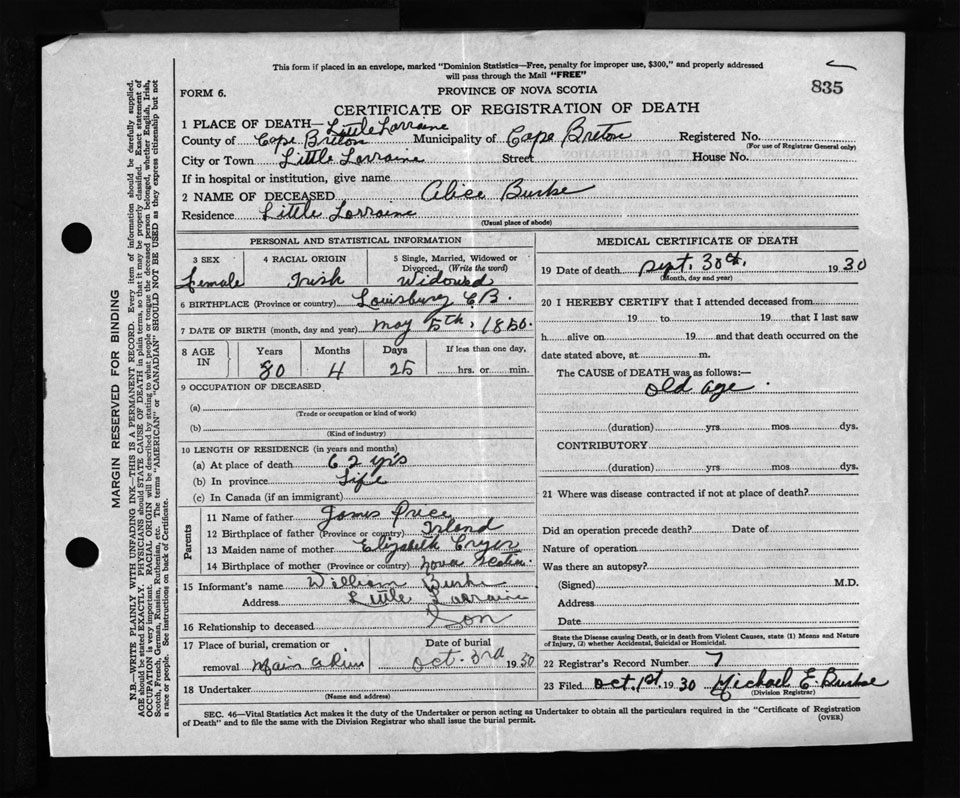 This form if placed in an envelope, marked "Dominion Statistics—Free, penalty for improper use, $300," and properly addressed
will pass through the Mail "FREE"
835
FORM 6. PROVINCE OF NOVA SCOTIA
CERTIFICATE OF REGISTRATION OF DEATH
1 PLACE OF DEATH— Little Lorraine
County of Cape Breton Municipality of Cape Breton Registered No.
(For use of Registrar General only)
City or Town Little Lorraine Street House No.
If in hospital or institution, give name
2 NAME OF DECEASED Alice Burke
Residence Little Lorraine
(Usual place of abode)
PERSONAL AND STATISTICAL INFORMATION
3 SEX 4 RACIAL ORIGIN 5 Single, Married, Widowed or
Divorced. (Write the word)
Female Irish Widowed
6 BIRTHPLACE (Province or country) Louisburg C B.
7 DATE OF BIRTH (month, day and year) May 5th, 1850.
8 AGE IN Years Months Days If less than one day,
80 4 25 hrs. or min.
9 OCCUPATION OF DECEASED
(a)
(Trade or occupation or kind of work)
(b)
(Kind of industry)
10 LENGTH OF RESIDENCE (in years and months)
(a) At place of death 62 yrs
(b) In province Life
(c) In Canada (if an immigrant)
Parents
11 Name of father James Price
12 Birthplace of father (Province or country) Irland
13 Maiden name of mother Elizabeth Cryer
14 Birthplace of mother (Province or country) Nova Scotia
15 Informant's name William Burke
Address Little Lorraine
16 Relationship to deceased Son
17 Place of burial, cremation or Date of burial
removal Main a Dieu Oct. 3rd 1930
18 Undertaker
(Name and address)
MEDICAL CERTIFICATE OF DEATH
19 Date of death Sept. 30th. 1930
(Month, day and year)
20 I HEREBY CERTIFY that I attended deceased from
19 to 19 that I last saw
h alive on 19 and that death occurred on the
date stated above, at m.
The CAUSE of DEATH was as follows:—
Old age
(duration) yrs mos dys.
CONTRIBUTORY
(duration) yrs mos dys.
21 Where was disease contracted if not at place of death?
Did an operation precede death? Date of
Nature of operation
Was there an autopsy?
(Signed) M.D.
Address
Date
State the Disease causing Death, or in death from Violent Causes, state (1) Means and Nature
of Injury, (2) whether Accidental, Suicidal or Homicidal.
22 Registrar's Record Number 7
23 Filed Oct. 1st 1930 Michael E Burke
(Division Registrar)
SEC. 46—Vital Statistics Act makes it the duty of the Undertaker or person acting as Undertaker to obtain all the particulars required in the "Certificate of Registration
of Death" and to file the same with the Division Registrar who shall issue the burial permit. (OVER)
MARGIN RESERVED FOR BINDING
N.B.—WRITE PLAINLY WITH UNFADING INK—THIS IS A PERMANENT RECORD. Every item of information should be carefully supplied.
AGE should be stated EXACTLY. PHYSICIANS should STATE CAUSE OF DEATH in plain terms, so that it may be properly classified. Exact statement of
OCCUPATION is very important. RACIAL ORIGIN will be described by stating to what people or tongue the deceased person belonged, whether English, Irish,
Scotch, French, German, Russian, Ruthenian, etc. The terms "AMERICAN" or "CANADIAN" SHOULD NOT BE USED as they express citizenship but not
a race or people. See instructions on back of Certificate.